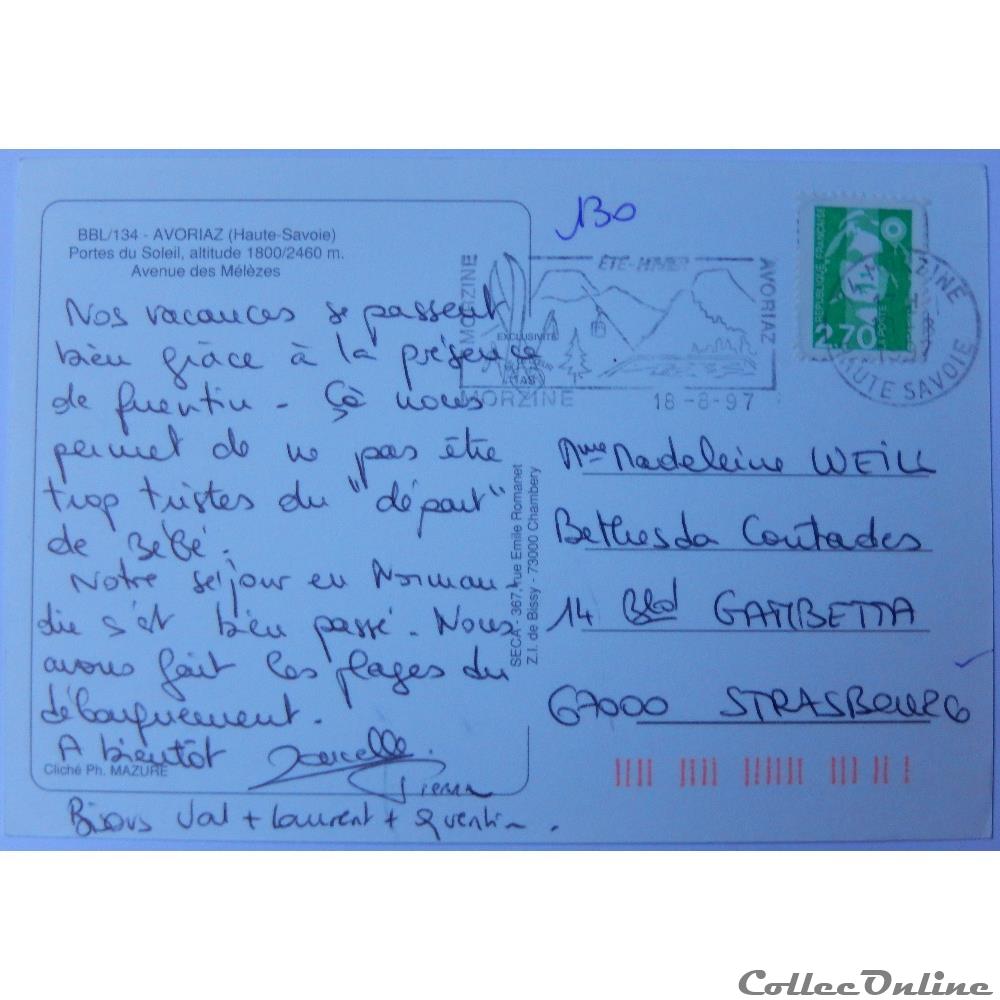 BBL/134 - AVORIAZ (Haute-Savoie)
Portes du Soleil, altitude 1800/2460 m.
Avenue des Mélèzes
Nos vacances se passent
bien grâce à la présence
de Quentin - Çà nous
permet de ne pas être
trop tristes du "départ"
de Bébé.
Notre séjour en Norman-
die s'est bien passé. Nous
avons fait les plages du
débarquement.
A bientôt Marcelle.
Pierre
Cliché Ph. MAZURE
Bisous Val + Laurent + Quentin.
SECA - 367, rue Emile Romanet
Z.I. de Bissy - 73000 Chambery
130
MORZINE
ÉTÉ-HIVER
AVORIAZ
EXCLUSIVITÉ
MORZINE
18-8-97
RÉPUBLIQUE FRANÇAISE
2,70
LA POSTE
MORZINE
HAUTE SAVOIE
Mme Madeleine WEILL
Bethesda Contades
14 Bld GAMBETTA
67000 STRASBOURG
CollecOnline